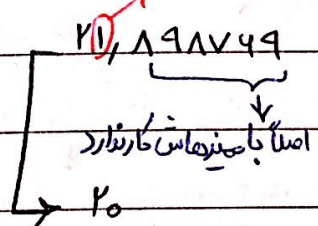 ۲۱,۸۹۸۷۶۹
اصلاً با ممیزهاش کار ندارد
۲۰